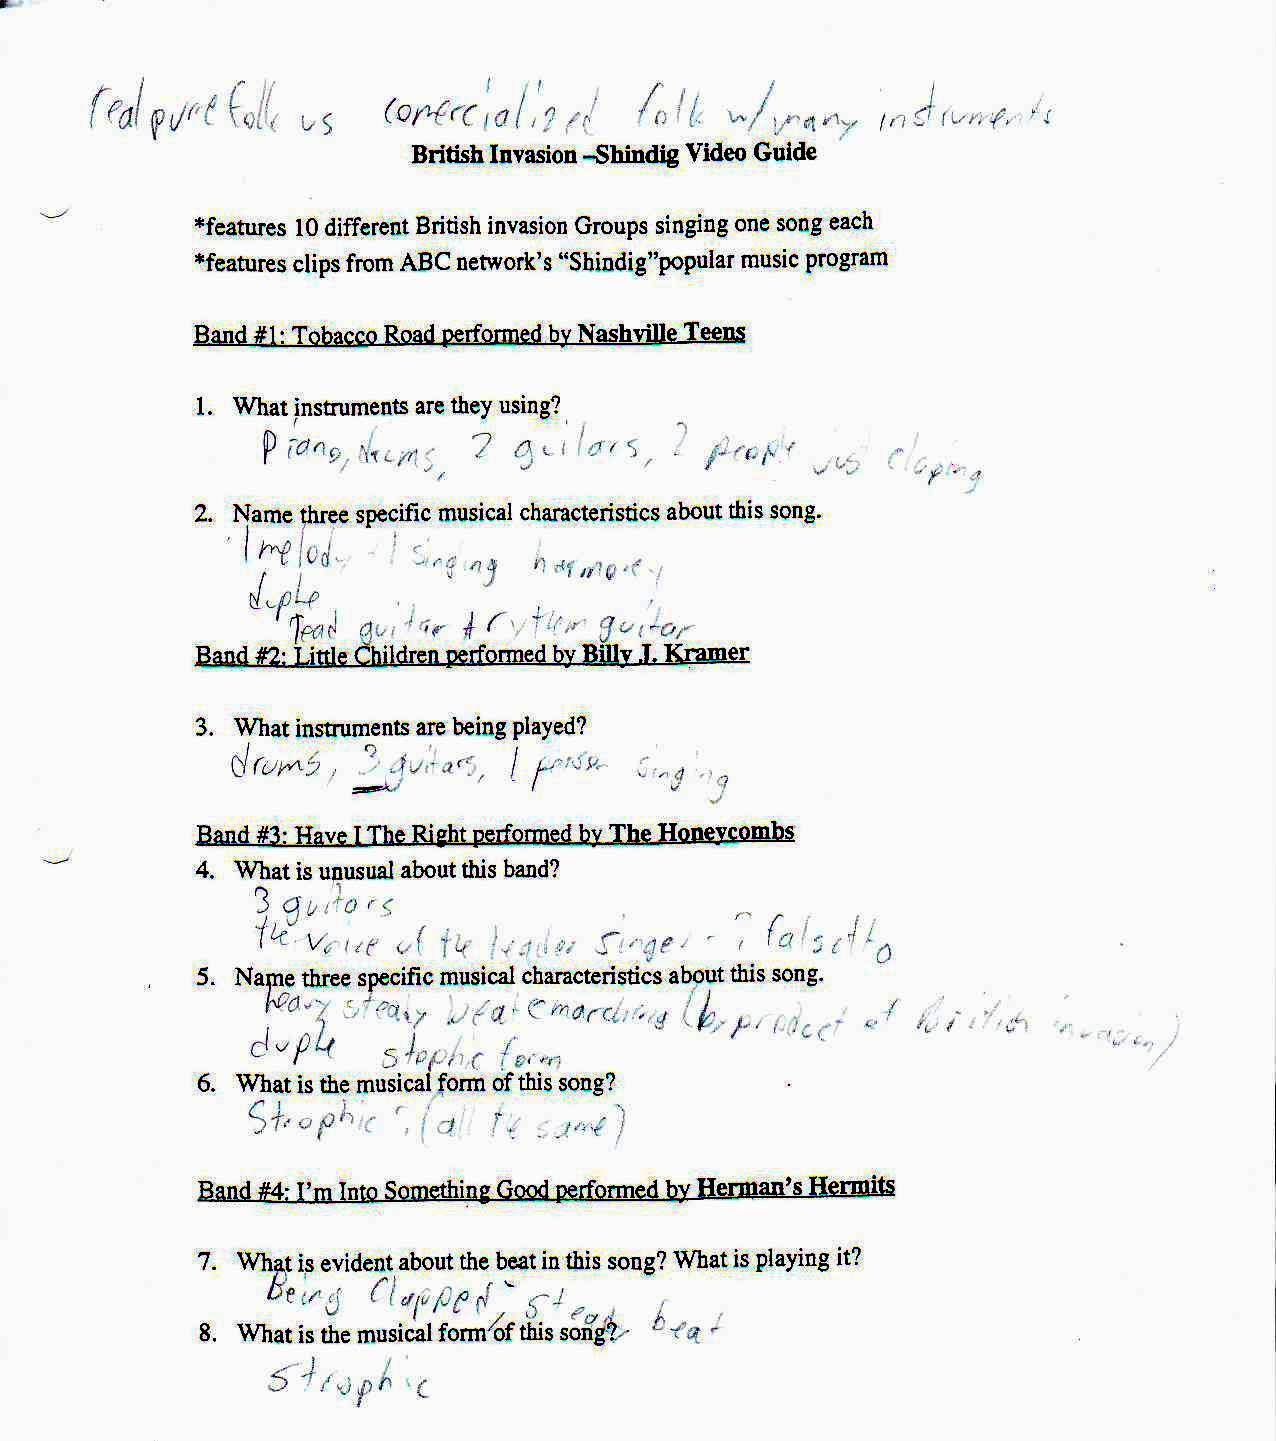 real pure folk vs comercialized folk w/ many instruments
British Invasion –Shindig Video Guide
*features 10 different British invasion Groups singing one song each
*features clips from ABC network's “Shindig”popular music program
Band #1: Tobacco Road performed by Nashville Teens
1. What instruments are they using?
Piano, drums, 2 guitars, 2 people just claping
2. Name three specific musical characteristics about this song.
1 melody - 1 singing harmoney
duple
lead guitar + rythem guitar
Band #2: Little Children performed by Billy J. Kramer
3. What instruments are being played?
drums, 3 guitars, 1 person singing
Band #3: Have I The Right performed by The Honeycombs
4. What is unusual about this band?
3 guitars
the voice of the leader singer - falsetto
5. Name three specific musical characteristics about this song.
heavy steady beat marching (byproduct of British invasion)
duple stophic form
6. What is the musical form of this song?
Strophic (all the same)
Band #4: I'm Into Something Good performed by Herman's Hermits
7. What is evident about the beat in this song? What is playing it?
Being Clapped, steady beat
8. What is the musical form of this song?
Strophic